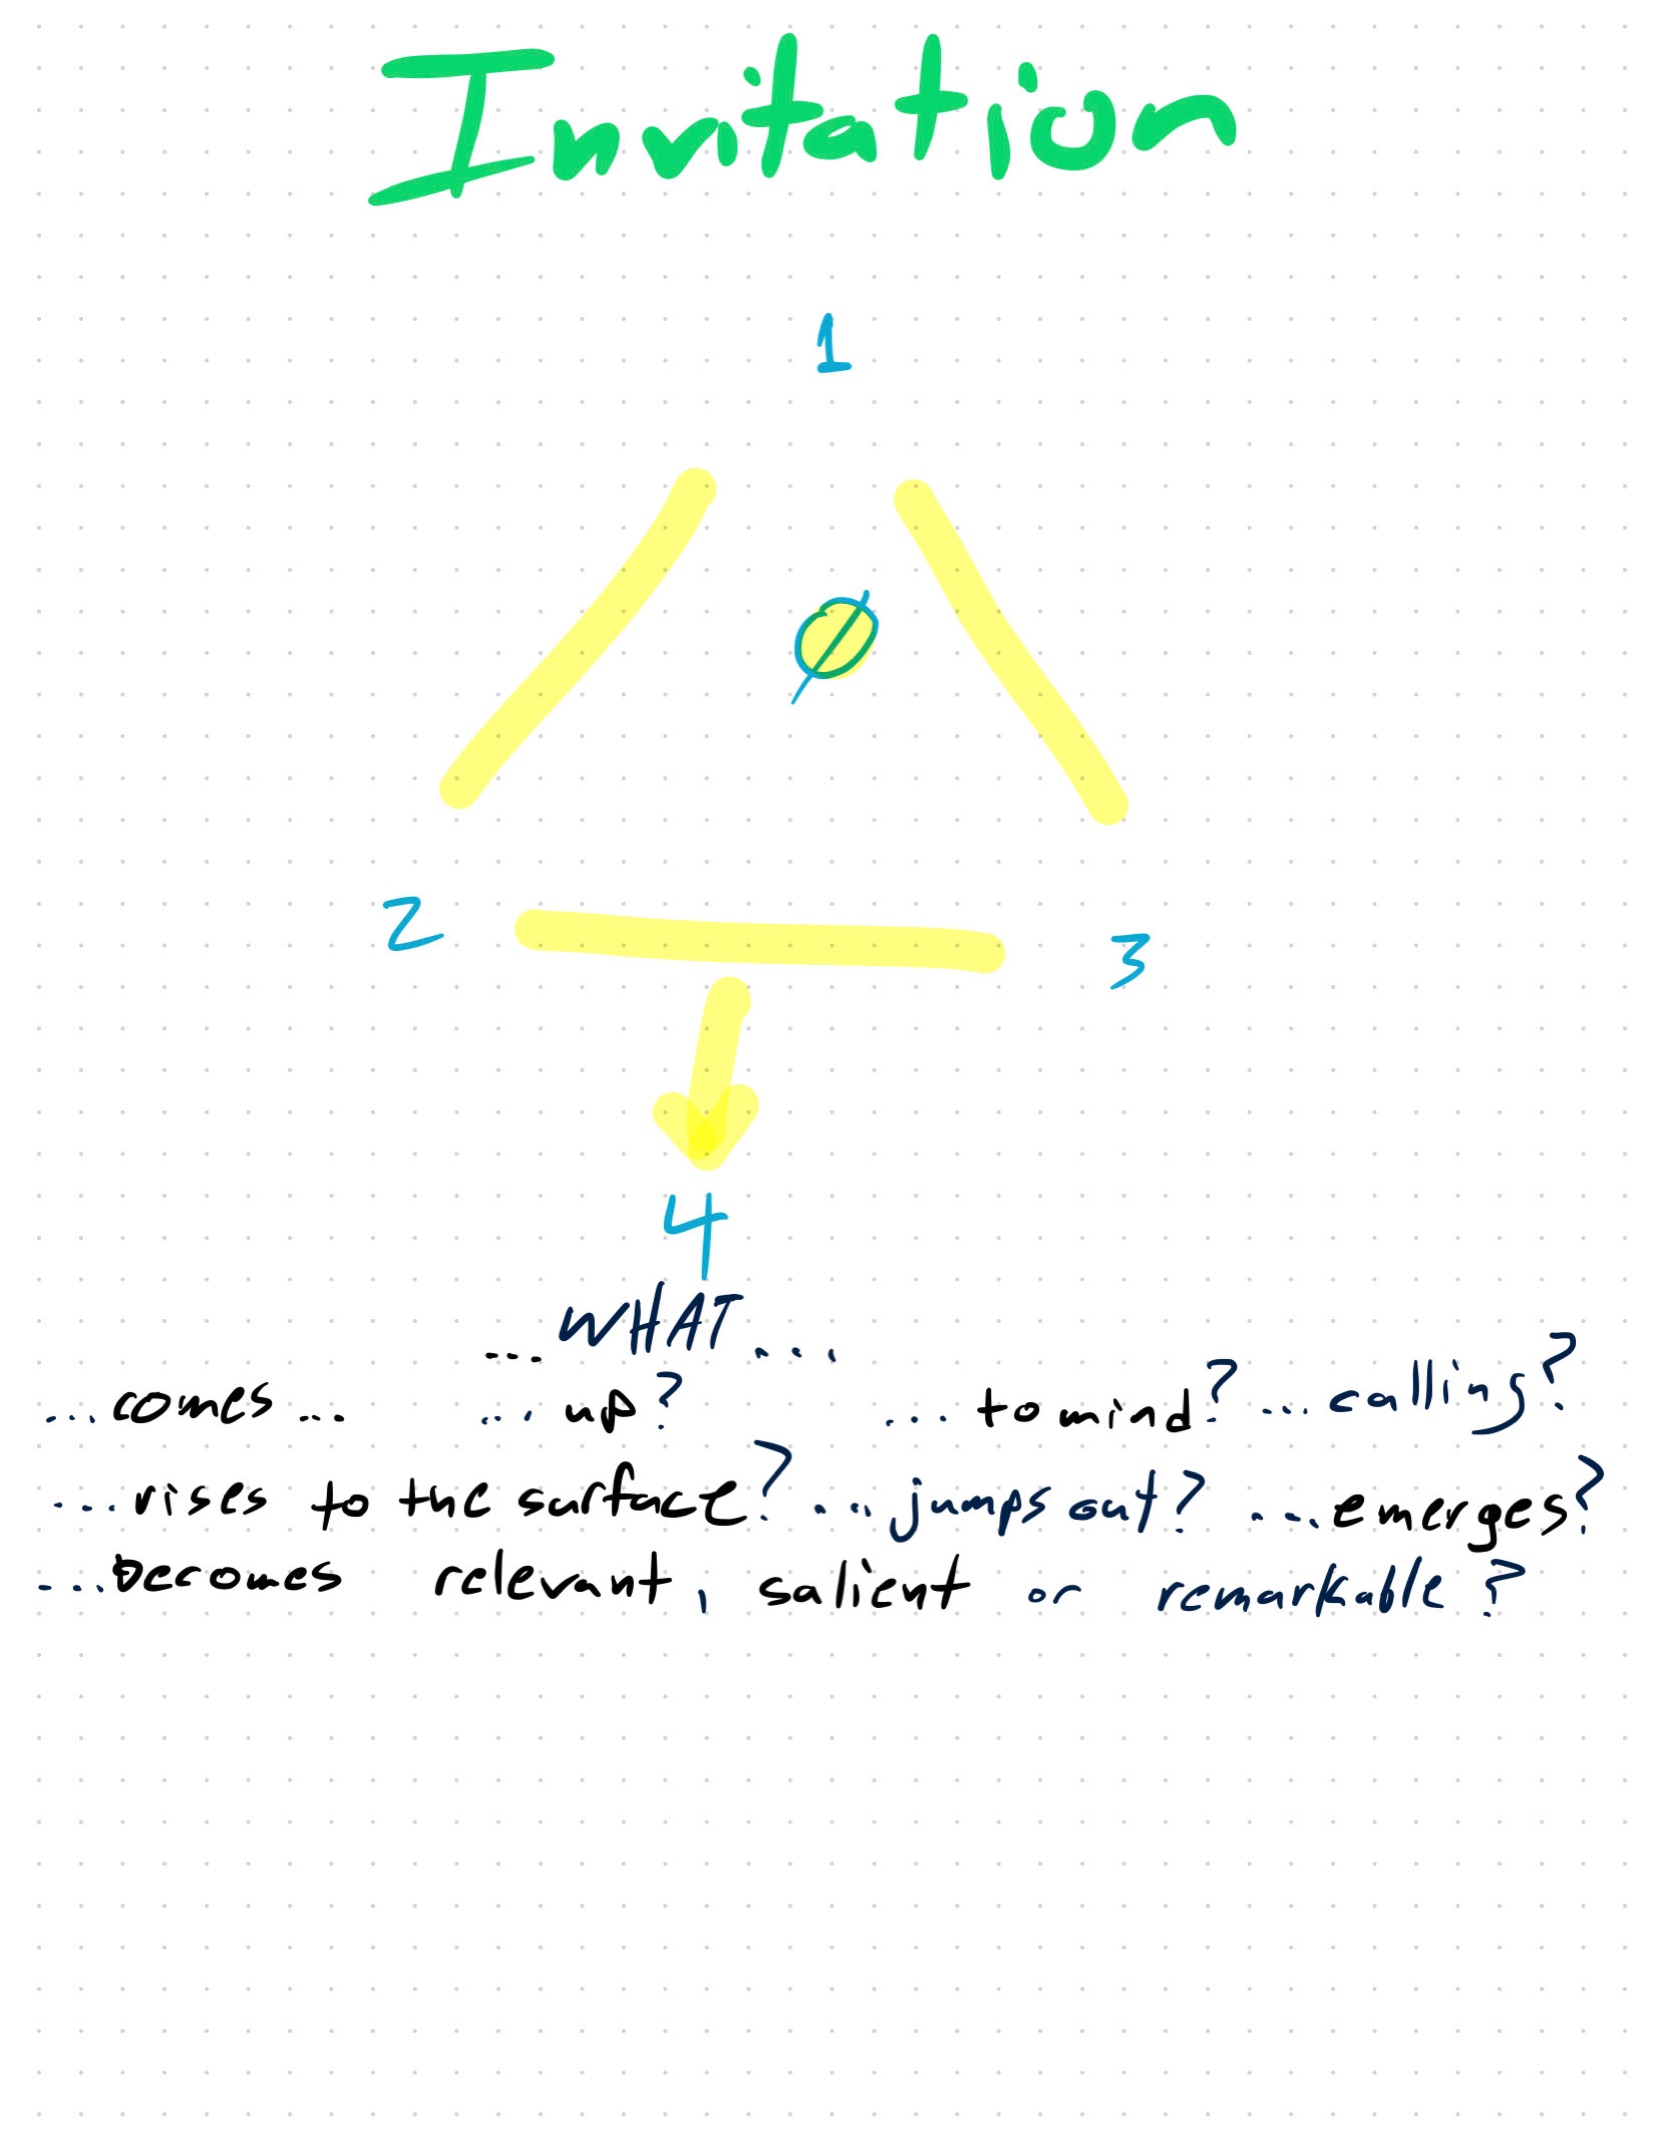 Invitation
1
Ø
2 3
4
...WHAT...
...comes... ...up? ...to mind? ...calling?
...rises to the surface? ...jumps out? ...emerges?
...becomes relevant, salient or remarkable?